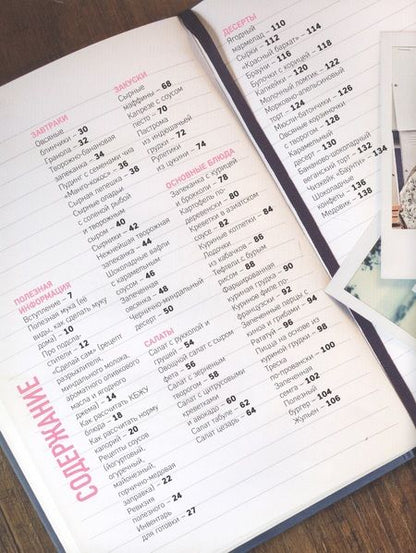 СОДЕРЖАНИЕ
ПОЛЕЗНАЯ
ИНФОРМАЦИЯ
Вступление – 7
Полезная мука (её
виды, как сделать муку
дома) – 10
Про подсла-
стители – 12
«Сделай сам» (рецепт
разрыхлителя,
миндального молока,
ароматного оливкового
масла и ягодного
джема) – 14
Как рассчитать КБЖУ
блюда – 18
Как рассчитать норму
калорий – 20
Рецепты соусов
(йогуртовый,
майонезный,
горчично-медовая
заправка) – 22
Ревизия
полезного – 24
Инвентарь
для готовки – 27
ЗАВТРАКИ
Овсяные
блинчики – 30
Гранола – 32
Творожно-банановая
запеканка – 34
Пудинг с семенами чиа
«Манго-кокос» – 36
Сырная лепешка – 38
Сырные оладьи
с соленой рыбой
и творожным
сыром – 40
Сырники – 42
Нежнейшая творожная
запеканка – 44
Шоколадные вафли
с карамельным
соусом – 46
Запеченная
овсянка – 48
Чернично-миндальный
десерт – 50
ЗАКУСКИ
Сырные
маффины – 68
Капрезе с соусом
песто – 70
Пастрома
из индюшачьей
грудки – 72
Рулетики
из цукини – 74
ОСНОВНЫЕ БЛЮДА
Запеканка с курицей
и брокколи – 78
Картофель по-
деревенски – 80
Креветки в азиатском
соусе – 82
Куриные котлетки – 84
Лодочки
из кабачков – 86
Тефтели с бурым
рисом – 88
Фаршированная
куриная грудка – 90
Куриное филе по-
французски – 92
Запеченные перцы с
киноа и грибами – 94
Рататуй – 96
Пицца на основе из
куриной грудки – 98
Тресковански – 100
Запеченная
семга – 102
Полезный
бургер – 104
Жульен – 106
САЛАТЫ
Салат с рукколой и
грушей – 54
Овощной салат с сыром
фета – 56
Салат с зерненым
творогом – 58
Салат с цитрусовыми,
креветками
и авокадо – 60
Салат табуле – 62
Салат цезарь – 64
ДЕСЕРТЫ
Ягодный
мармелад – 110
Сырки – 112
«Красный бархат» – 114
Брауни – 116
Булочки с корицей – 118
Капкейки – 120
Молочный ломтик – 122
Морковно-апельсиновый
торт – 124
Мюсли-батончики – 126
Овсяные корзиночки
с творогом – 128
Карамельный
десерт – 130
Бананово-шоколадный
веганский торт – 132
Чизкейк «Баунти» – 134
Шоколадные
конфеты – 136
Медовик – 138